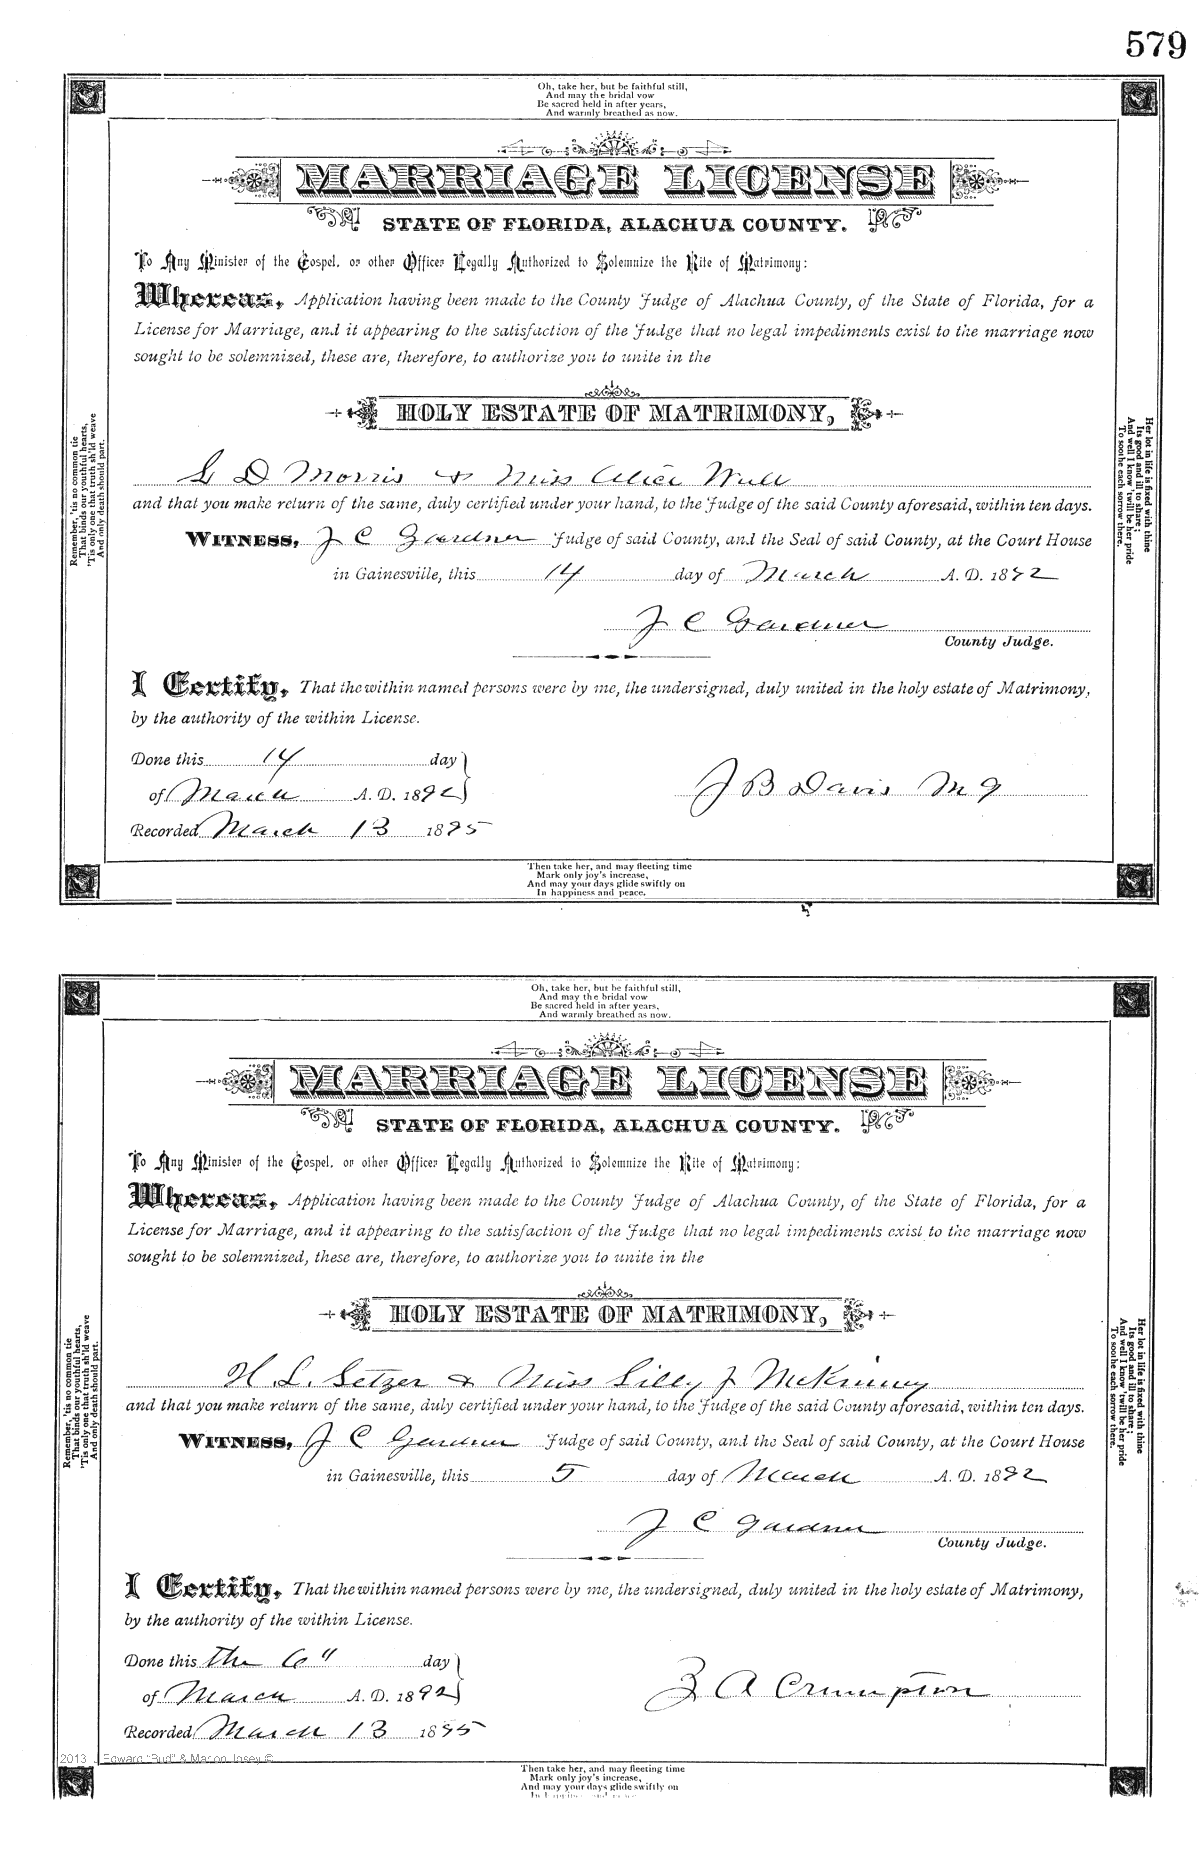 579
Oh, take her, but be faithful still,
And may the bridal vow
Be sacred held in after years,
And warmly breathed as now.
MARRIAGE LICENSE
STATE OF FLORIDA, ALACHUA COUNTY.
To Any Minister of the Gospel, or other Officer Legally Authorized to Solemnize the Rite of Matrimony:
Whereas, Application having been made to the County Judge of Alachua County, of the State of Florida, for a
License for Marriage, and it appearing to the satisfaction of the Judge that no legal impediments exist to the marriage now
sought to be solemnized, these are, therefore, to authorize you to unite in the
HOLY ESTATE OF MATRIMONY,
D Morris & Miss Alice
and that you make return of the same, duly certified under your hand, to the Judge of the said County aforesaid, within ten days.
WITNESS, J C Gardner Judge of said County, and the Seal of said County, at the Court House
in Gainesville, this 14 day of March A. D. 1892
J C Gardner
County Judge.
I Certify, That the within named persons were by me, the undersigned, duly united in the holy estate of Matrimony,
by the authority of the within License.
Done this 14 day
of March A. D. 1892
J B Davis M G
Recorded March 13 1895
Remember, 'tis no common tie
That binds our youthful hearts,
'Tis only one that truth sh'ld weave
And only death should part.
Her lot in life is fixed with thine
Its good and ill to share;
And well I know 'twill be her pride
To soothe each sorrow there.
Then take her, and may fleeting time
Mark only joy's increase,
And may your days glide swiftly on
In happiness and peace.
Oh, take her, but be faithful still,
And may the bridal vow
Be sacred held in after years,
And warmly breathed as now.
MARRIAGE LICENSE
STATE OF FLORIDA, ALACHUA COUNTY.
To Any Minister of the Gospel, or other Officer Legally Authorized to Solemnize the Rite of Matrimony:
Whereas, Application having been made to the County Judge of Alachua County, of the State of Florida, for a
License for Marriage, and it appearing to the satisfaction of the Judge that no legal impediments exist to the marriage now
sought to be solemnized, these are, therefore, to authorize you to unite in the
HOLY ESTATE OF MATRIMONY,
H. L. Setzer & Miss Lilly J McKinney
and that you make return of the same, duly certified under your hand, to the Judge of the said County aforesaid, within ten days.
WITNESS, J C Gardner Judge of said County, and the Seal of said County, at the Court House
in Gainesville, this 5 day of March A. D. 1892
J C Gardner
County Judge.
I Certify, That the within named persons were by me, the undersigned, duly united in the holy estate of Matrimony,
by the authority of the within License.
Done this the 6" day
of March A. D. 1892
Z A Crumpton
Recorded March 13 1895
Remember, 'tis no common tie
That binds our youthful hearts,
'Tis only one that truth sh'ld weave
And only death should part.
Her lot in life is fixed with thine
Its good and ill to share;
And well I know 'twill be her pride
To soothe each sorrow there.
2013 J. Edward "Bud" & Marion Josey ©
Then take her, and may fleeting time
Mark only joy's increase,
And may your days glide swiftly on
In happiness and peace